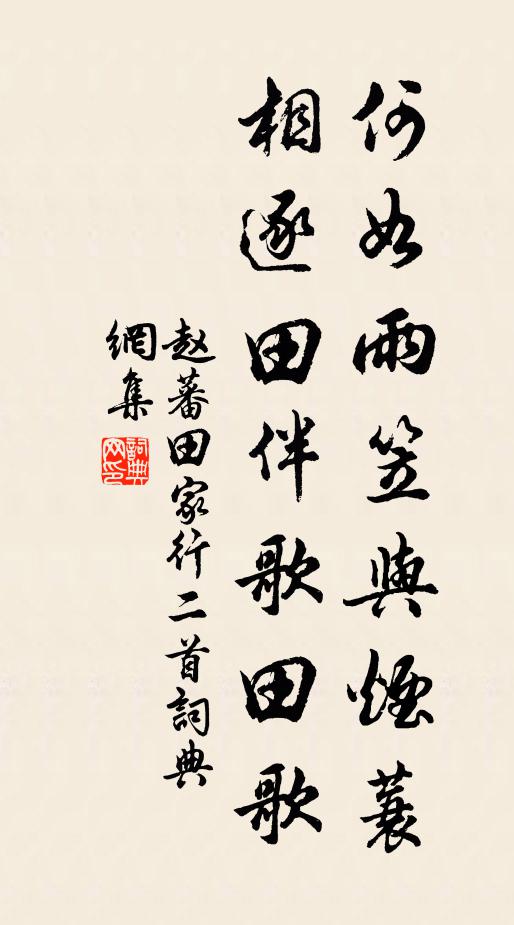 何如雨笠與煙蓑
相逐田伴歌田歌
赵蕃田家行二首詞典
網集
詞典網印